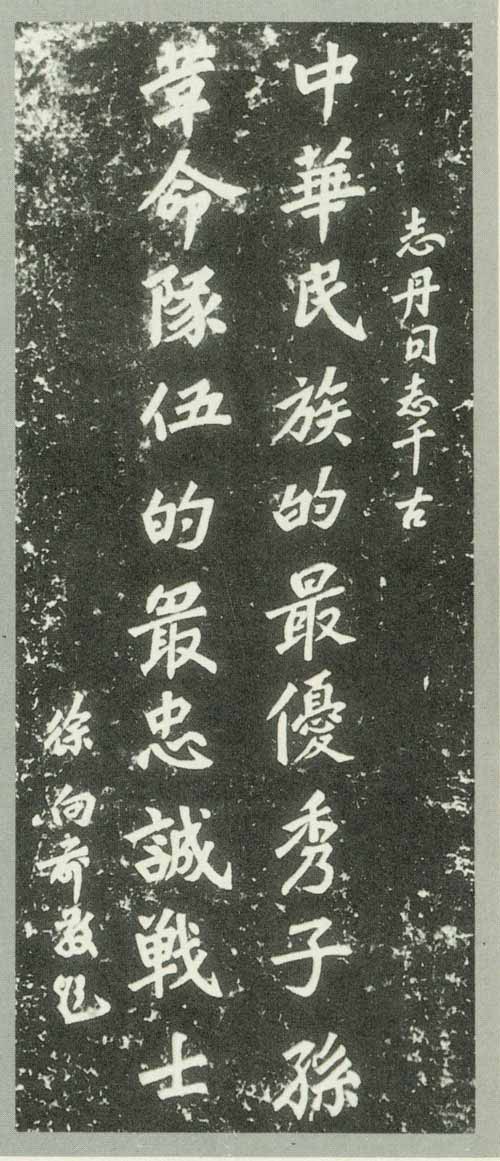 志丹同志千古
中華民族的最優秀子孫
革命隊伍的最忠誠戰士
徐向前敬題